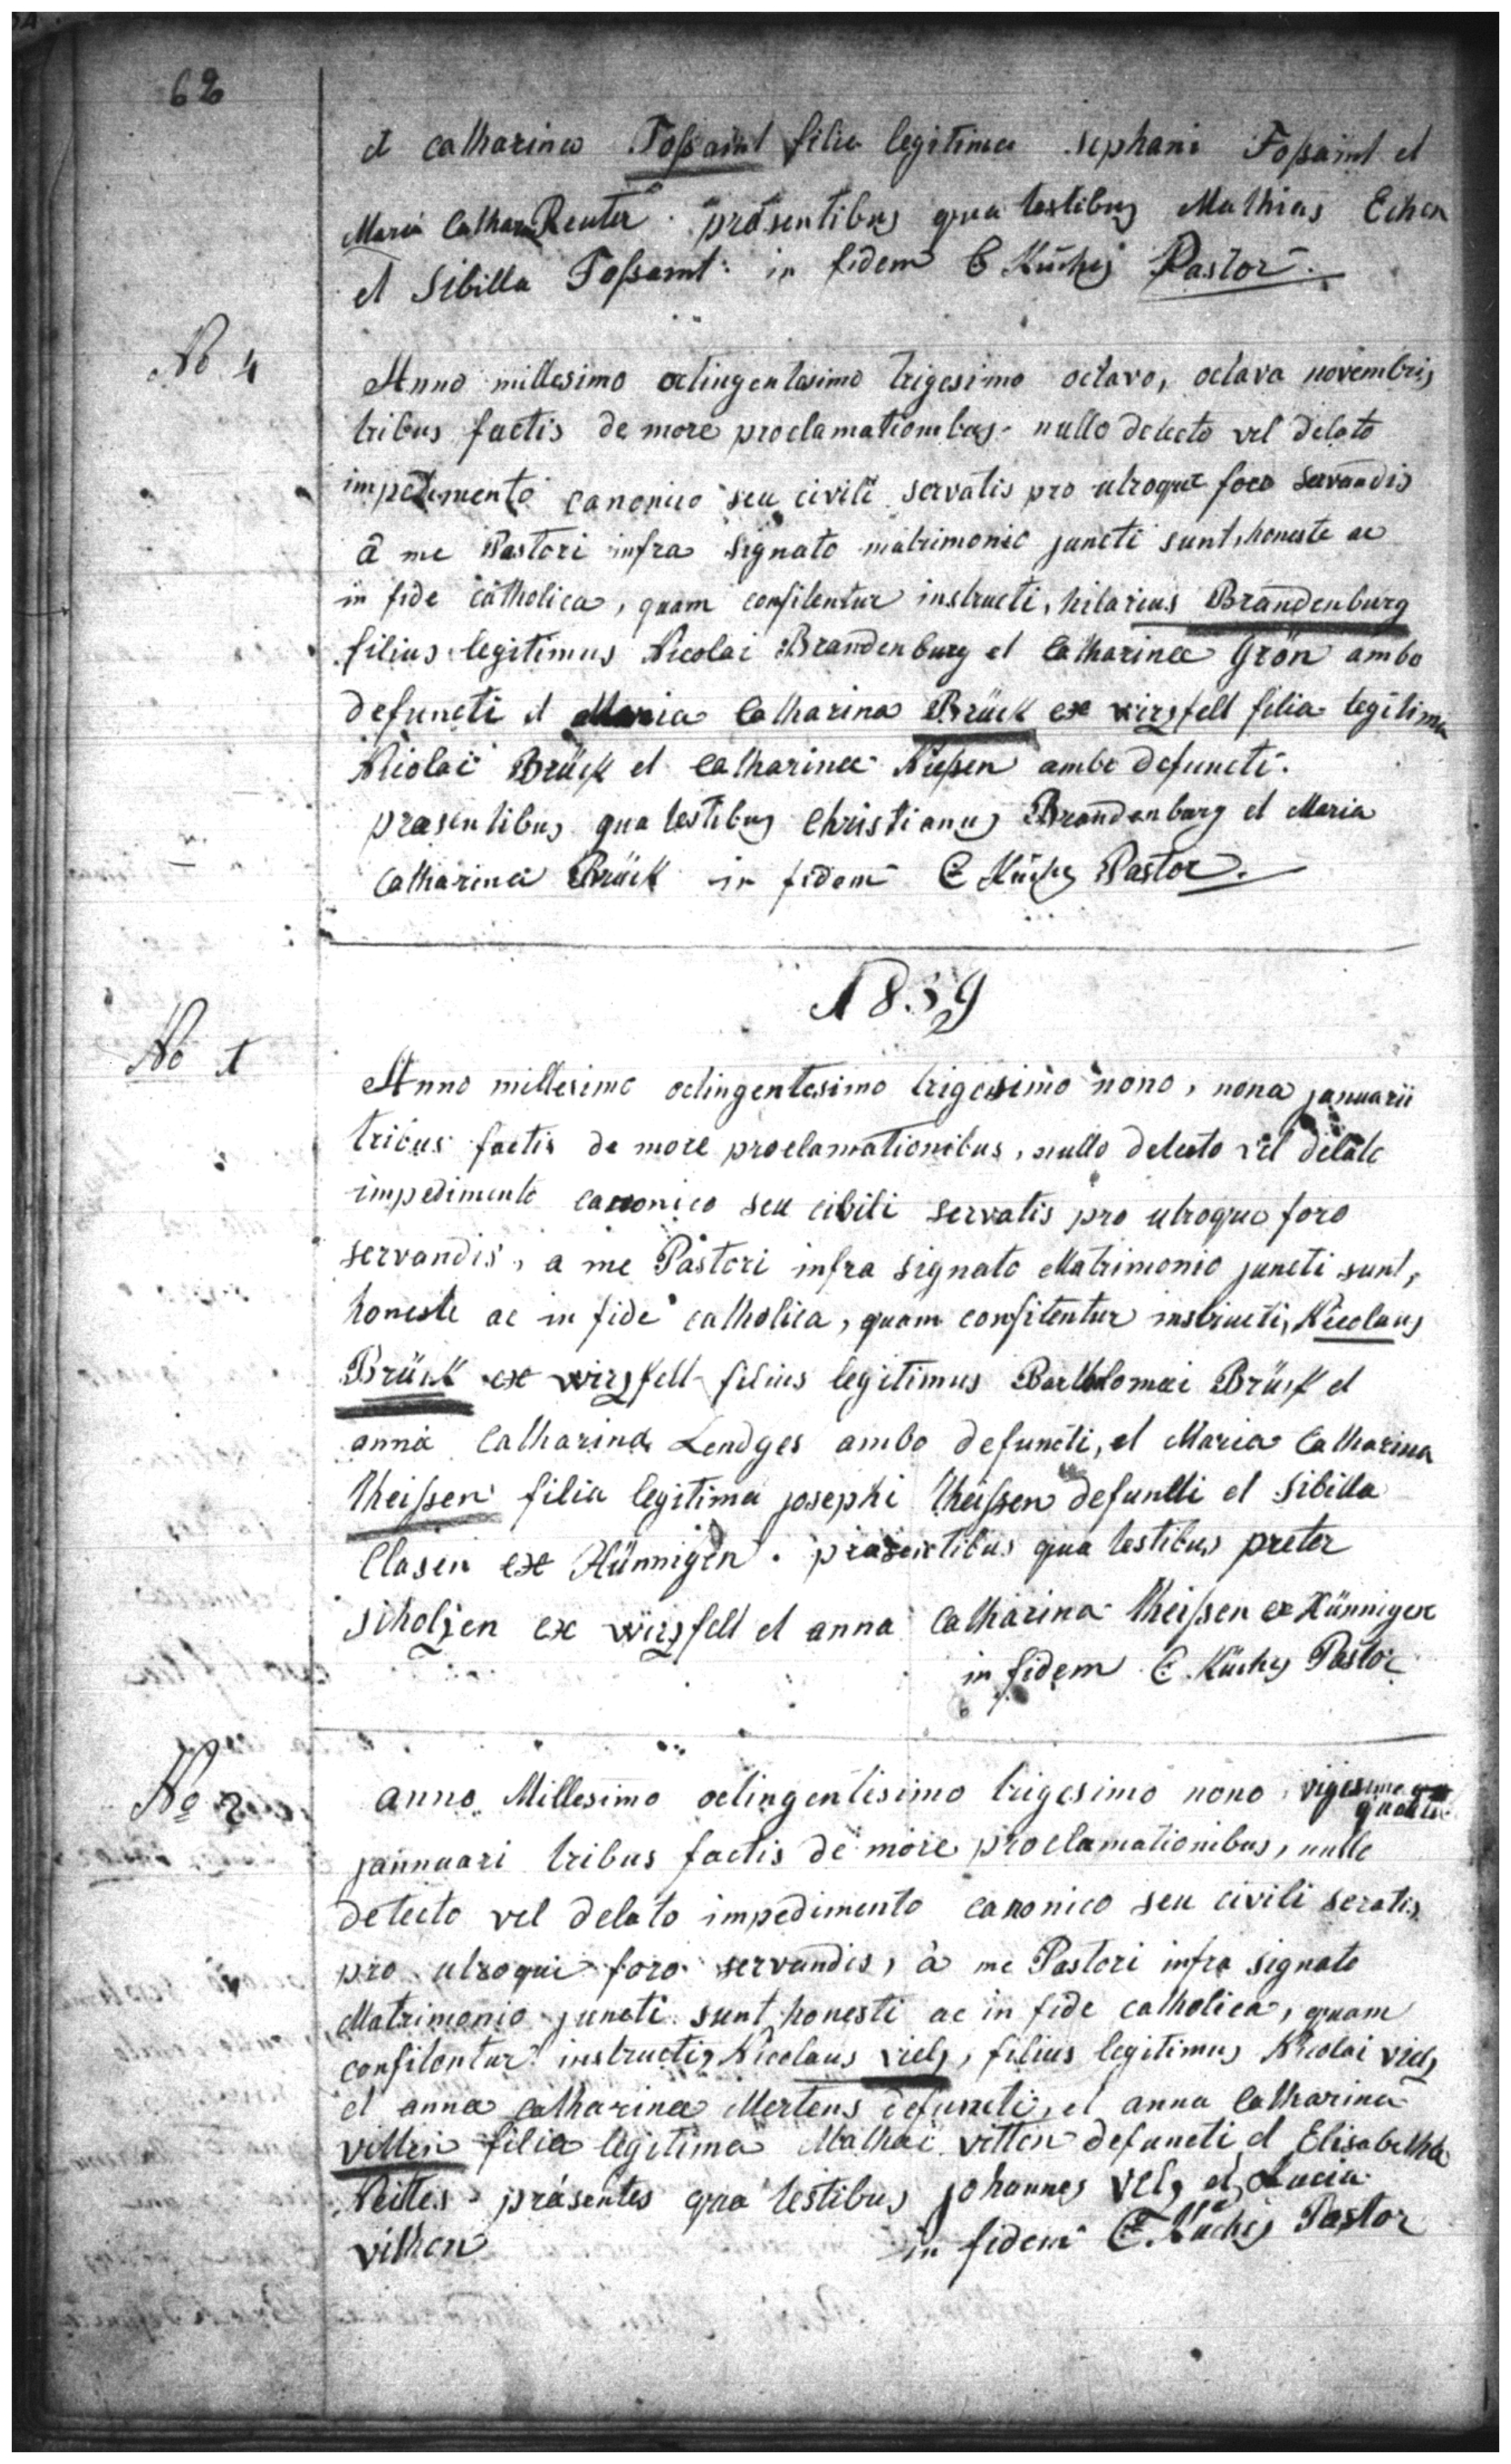 62
et catharina Toßaint filia legitima sephani Toßaint et
Maria Cathari Reuter. präsentibus qua testibus Mathias Echen
et Sibilla Toßaint: in fidem C Küches Pastor.
No 4
Anno millesimo octingentesimo trigesimo octavo, octava novembris
tribus factis de more proclamationibus nullo detecto vel delato
impedimento canonico seu civili servatis pro utroque foro servandis
a me Pastori infra signato matrimonio juncti sunt, honeste ac
in fide catholica, quam confitentur instructi, hilarius Brandenburg
filius legitimus Nicolai Brandenburg et Catharinae Grön ambo
defuncti et Maria Catharina Brück ex wirzfell filia legitima
Nicolai Brück et Catharinae Nießen ambo defuncti.
praesentibus qua testibus Christianus Brandenburg et Maria
Catharina Brück in fidem C Küches Pastor.
1839
No 1
Anno millesimo octingentesimo trigesimo nono, nona januarii
tribus factis de more proclamationibus, nullo detecto vel delato
impedimento canonico seu cibili servatis pro utroque foro
servandis, a me Pastori infra signato Matrimonio juncti sunt,
honeste ac in fide catholica, quam confitentur instructi, Nicolaus
Brück ex wirzfell filius legitimus Bartholomai Brück et
anna Catharina Lendges ambo defuncti, et Maria Catharina
theißen filia legitima josephi theißen defuncti et Sibilla
Clasen ex Hünnigen. präsentibus qua testibus preter
scholzen ex wirzfell et anna Catharina theißen ex Hünnigen
in fidem C. Küches Pastor
No 2
anno Millesimo octingentisimo trigesimo nono, vigesimo
quarta
jannuari tribus factis de more proclamationibus, nullo
detecto vel delato impedimento canonico seu civili seratis
pro utroqui foro servandis, à me Pastori infra signato
Matrimonio juncti sunt honesti ac in fide catholica, quam
confitontur instructi, Nicolaus viels, filius legitimus Nicolai viels
et anna catharina Mertens defuncti, et anna Catharina
vitten filia legitima Mathai vitten defuncti et Elisabetha
Neittes präsentes qua testibus johannes vels et Lucia
vithen in fidem C. Küches Pastor